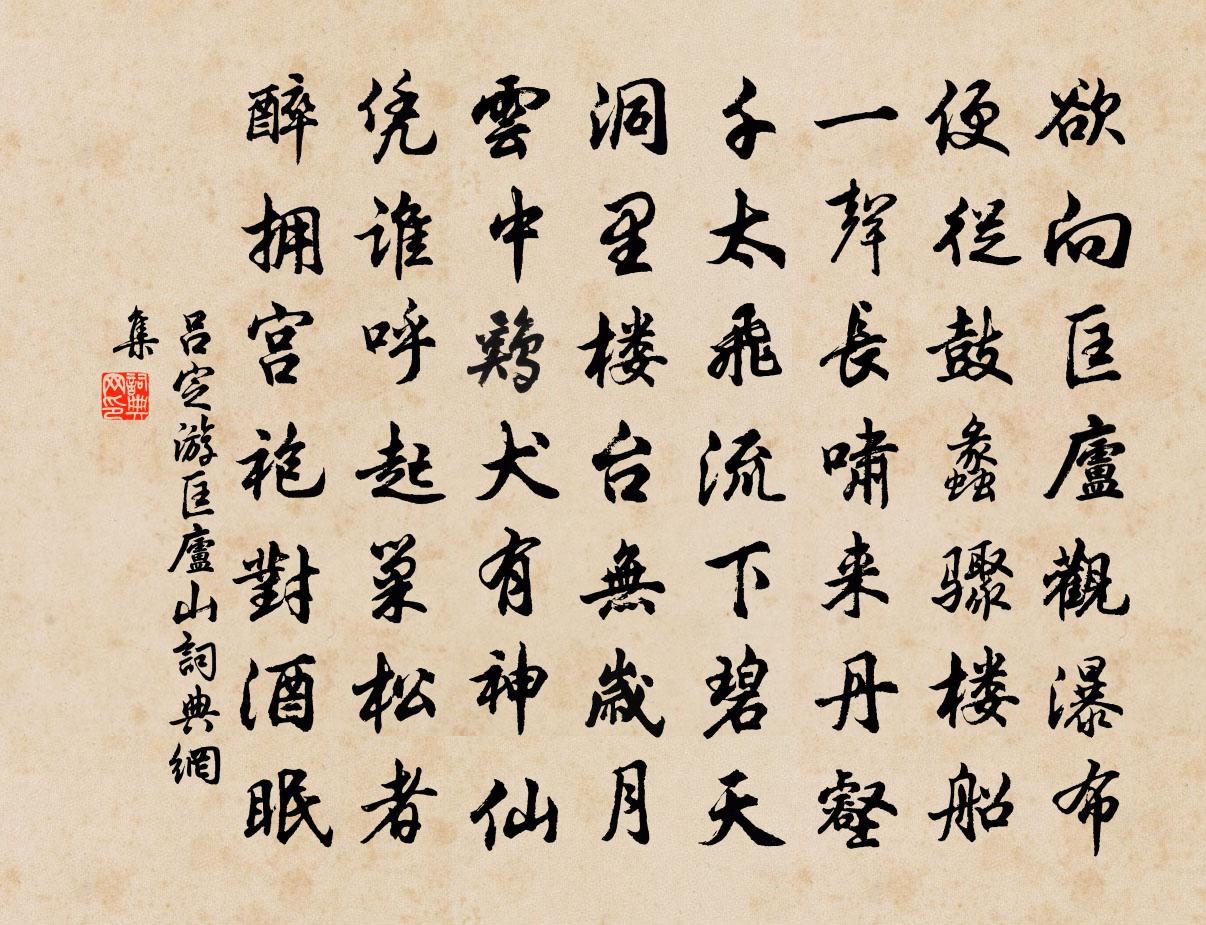 欲向匡廬觀瀑布
便從鼓蠡驟楼船
一聲長嘯来丹壑
千太飛流下碧天
洞里楼台無歲月
雲中鷄犬有神仙
凭誰呼起巢松者
醉拥宫袍對酒眠
吕定游匡廬山詞典網
集
詞典网印